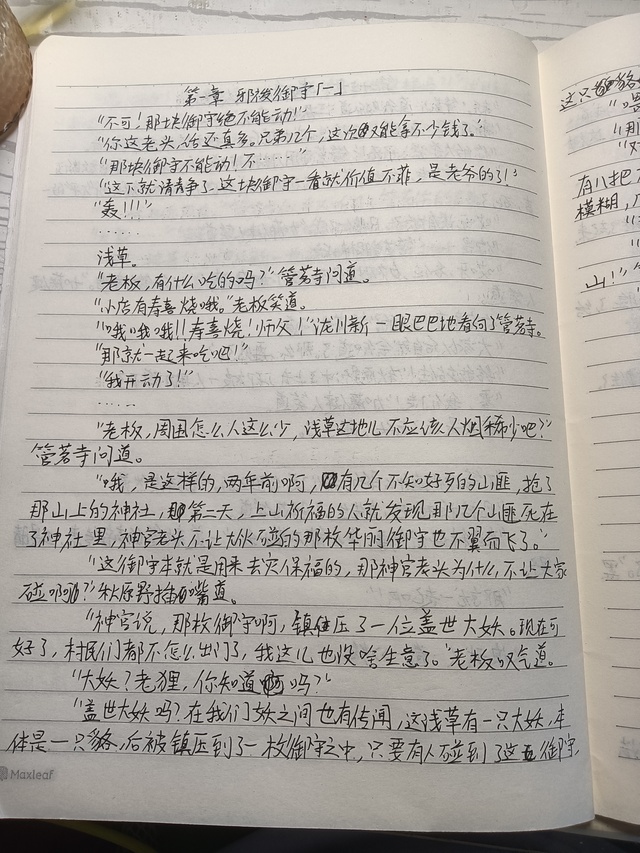 第一章 邪淩御守「一」
"不可！那块御守绝不能动！"
"你这老头，话还真多。兄弟几个，这次又能拿不少钱了。"
"那块御守不能动！不……"
"这不就清静了，这块御守一看就价值不菲，是老爷的了！"
"轰！！！"
……
浅草。
"老板，有什么吃的吗？"管若寺问道。
"小店有寿喜烧哦。"老板笑道。
"哦哦哦！！寿喜烧！师父！"泷川新一眼巴巴地看向了管若寺。
"那就一起来吃吧！"
"我开动了！"
……
"老板，周围怎么人这么少，浅草这地儿不应该人烟稀少吧？"
管若寺问道。
"哦，是这样的，两年前啊，有几个不知好歹的山匪，抢了
那山上的神社，第二天，上山祈福的人就发现那几个山匪死在
了神社里，神官老头不让大伙碰的那枚华丽御守也不翼而飞了。"
"这御守本就是用来去灾保福的，那神官老头为什么不让大家
碰啊？"秋原野插嘴道。
"神官说，那枚御守啊，镇压了一位盖世大妖。现在可
好了，村民们都不怎么出门了，我这儿也没啥生意了。"老板叹气道。
"大妖？老狸，你知道吗？"
"盖世大妖吗？在我们妖之间也有传闻，这浅草有一只大妖，本
体是一只貉，后被镇压到了一枚御守之中，只要有人碰到了这御守，
Maxleaf
这只貉
有八把
模糊，
山！"